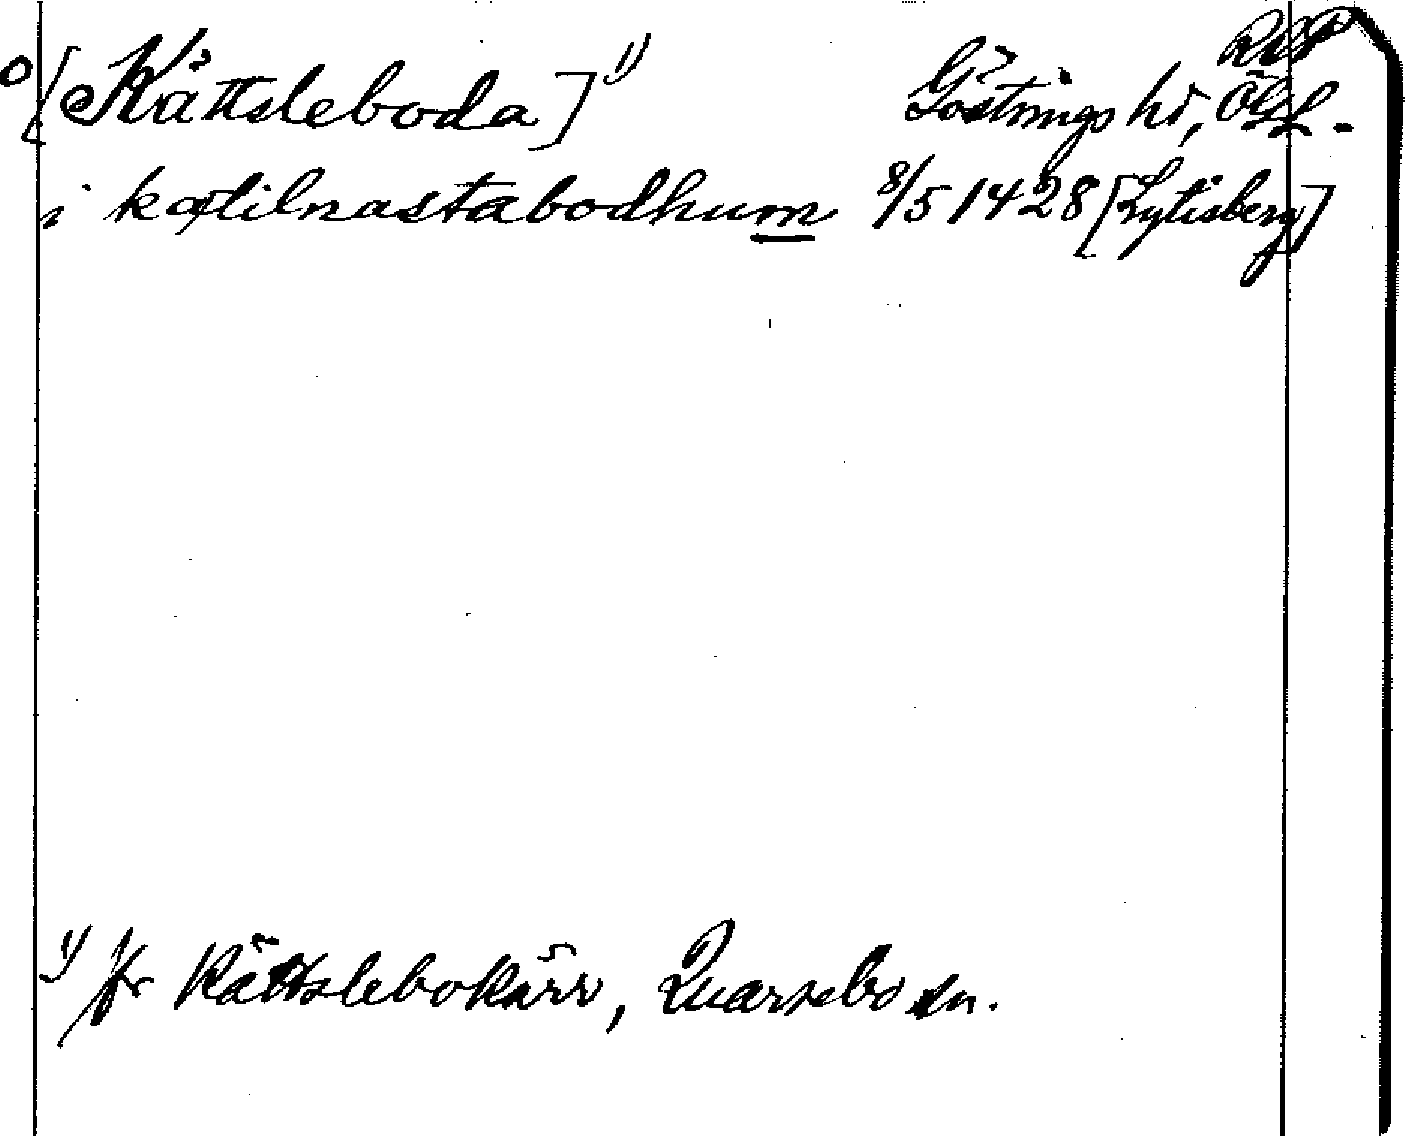 RAP
o [Kättsleboda] 1) Göstrings hd, Ögl.
i kætilnastabodhum 8/5 1428 [Lytisberg]
1) jfr Kättslebokärr, Quarsebo sn.